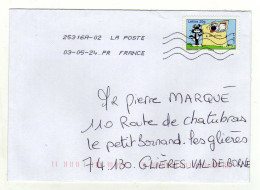 25316A-02 LA POSTE
03-05-24 PR FRANCE
Mr Pierre MARQUÉ
110 Route de chatubras
le petit Bornand. les glières
74 130. GLIÈRES VAL DE BORNE